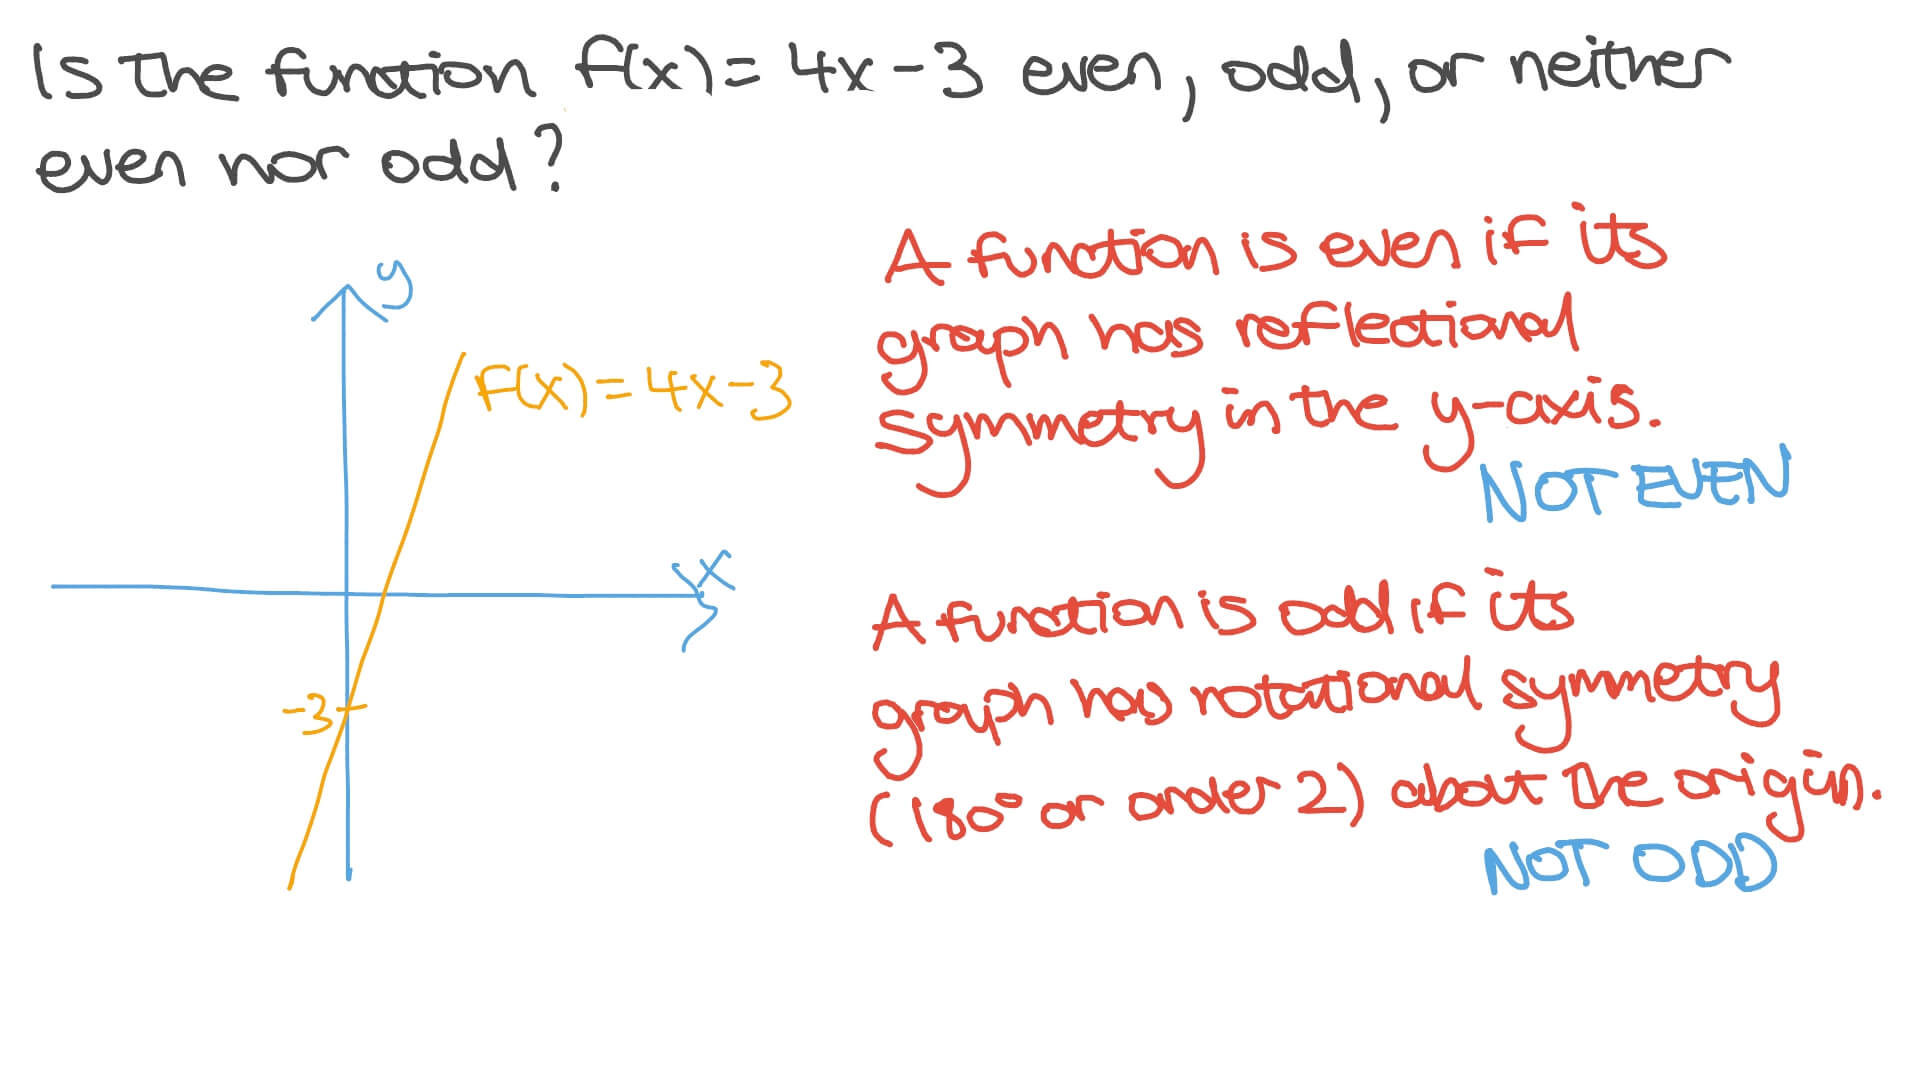 Is the function f(x) = 4x - 3 even, odd, or neither
even nor odd?
A function is even if its
y
graph has reflectional
f(x) = 4x - 3
symmetry in the y-axis.
NOT EVEN
x
A function is odd if its
graph has rotational symmetry
-3
(180° or order 2) about the origin.
NOT ODD